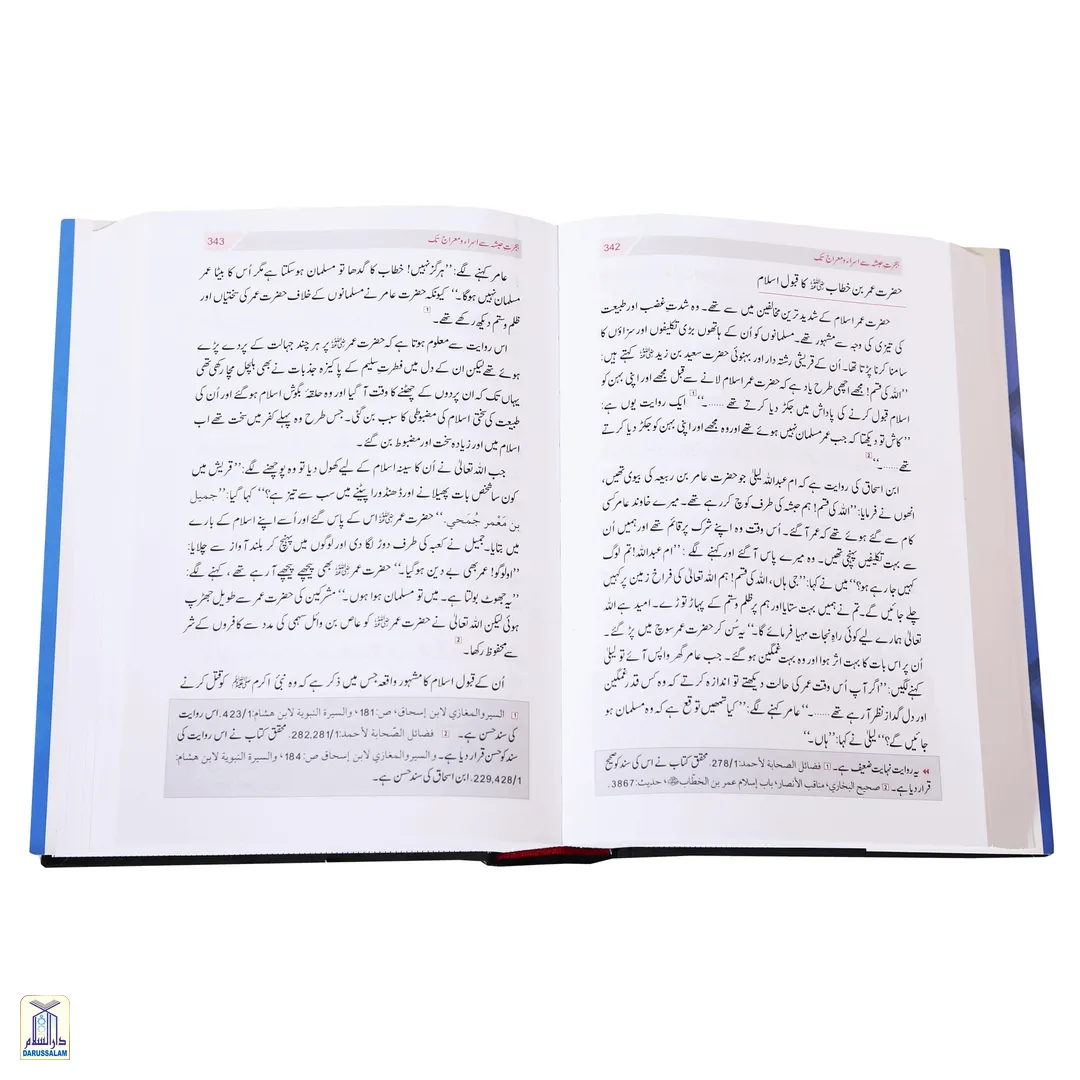 342
ہجرتِ حبشہ سے اسراء و معراج تک
حضرت عمر بن خطاب ﷜ کا قبول اسلام
حضرت عمر اسلام کے شدید ترین مخالفین میں سے تھے۔ وہ شدتِ غضب اور طبیعت
کی تیزی کی وجہ سے مشہور تھے۔ مسلمانوں کو اُن کے ہاتھوں بڑی تکلیفوں اور سزاؤں کا
سامنا کرنا پڑتا تھا۔ اُن کے قریشی رشتہ دار اور بہنوئی حضرت سعید بن زید ﷜ کہتے ہیں:
’’اللہ کی قسم! مجھے اچھی طرح یاد ہے کہ حضرت عمر اسلام لانے سے قبل مجھے اور اپنی بہن کو
اسلام قبول کرنے کی پاداش میں جکڑ دیا کرتے تھے ......۔‘‘ 1 ایک روایت یوں ہے:
’’کاش تو دیکھتا کہ جب عمر مسلمان نہیں ہوئے تھے اور وہ مجھے اور اپنی بہن کو جکڑ دیا کرتے
تھے ......۔‘‘ 2
ابن اسحاق کی روایت ہے کہ ام عبداللہ لیلیٰ جو حضرت عامر بن ربیعہ کی بیوی تھیں،
انھوں نے فرمایا: ’’اللہ کی قسم! ہم حبشہ کی طرف کوچ کر رہے تھے۔ میرے خاوند عامر کسی
کام سے گئے ہوئے تھے کہ عمر آ گئے۔ اُس وقت وہ اپنے شرک پر قائم تھے اور ہمیں اُن
سے بہت تکلیفیں پہنچی تھیں۔ وہ میرے پاس آ گئے اور کہنے لگے: ’’ام عبداللہ! تم لوگ
کہیں جا رہے ہو؟‘‘ میں نے کہا: ’’جی ہاں، اللہ کی قسم! ہم اللہ تعالیٰ کی فراخ زمین پر کہیں
چلے جائیں گے۔ تم نے ہمیں بہت ستایا اور ہم پر ظلم و ستم کے پہاڑ توڑے۔ امید ہے اللہ
تعالیٰ ہمارے لیے کوئی راہِ نجات مہیا فرمائے گا۔‘‘ یہ سُن کر حضرت عمر سوچ میں پڑ گئے۔
اُن پر اس بات کا بہت اثر ہوا اور وہ بہت غمگین ہو گئے۔ جب عامر گھر واپس آئے تو لیلیٰ
کہنے لگیں: ’’اگر آپ اُس وقت عمر کی حالت دیکھتے تو اندازہ کرتے کہ وہ کس قدر غمگین
اور دل گداز نظر آ رہے تھے ......۔‘‘ عامر کہنے لگے: ’’کیا تمھیں توقع ہے کہ وہ مسلمان ہو
جائیں گے؟‘‘ لیلیٰ نے کہا: ’’ہاں۔‘‘
◄◄ یہ روایت نہایت ضعیف ہے۔ 1 فضائل الصحابة لأحمد: 278/1. محقق کتاب نے اس کی سند کو صحیح
قرار دیا ہے۔ 2 صحيح البخاري، مناقب الأنصار، باب إسلام عمر بن الخطاب ﷜، حديث: 3867.
343
ہجرتِ حبشہ سے اسراء و معراج تک
عامر کہنے لگے: ’’ہرگز نہیں! خطاب کا گدھا تو مسلمان ہو سکتا ہے مگر اُس کا بیٹا عمر
مسلمان نہیں ہو گا۔‘‘ کیونکہ حضرت عامر نے مسلمانوں کے خلاف حضرت عمر کی سختیاں اور
ظلم و ستم دیکھ رکھے تھے۔ 1
اس روایت سے معلوم ہوتا ہے کہ حضرت عمر ﷜ پر ہر چند جہالت کے پردے پڑے
ہوئے تھے لیکن ان کے دل میں فطرتِ سلیم کے پاکیزہ جذبات نے بھی ہلچل مچا رکھی تھی
یہاں تک کہ ان پردوں کے چھٹنے کا وقت آ گیا اور وہ حلقہ بگوش اسلام ہو گئے اور اُن کی
طبیعت کی سختی اسلام کی مضبوطی کا سبب بن گئی۔ جس طرح وہ پہلے کفر میں سخت تھے اب
اسلام میں اور زیادہ سخت اور مضبوط بن گئے۔
جب اللہ تعالیٰ نے اُن کا سینہ اسلام کے لیے کھول دیا تو وہ پوچھنے لگے: ’’قریش میں
کون سا شخص بات پھیلانے اور ڈھنڈورا پیٹنے میں سب سے تیز ہے؟‘‘ کہا گیا: ’’جميل
بن مَعْمر جُمَحي.‘‘ حضرت عمر ﷜ اس کے پاس گئے اور اُسے اپنے اسلام کے بارے
میں بتایا۔ جمیل نے کعبہ کی طرف دوڑ لگا دی اور لوگوں میں پہنچ کر بلند آواز سے چلایا:
’’او لوگو! عمر بھی بے دین ہو گیا۔‘‘ حضرت عمر ﷜ بھی پیچھے پیچھے آ رہے تھے، کہنے لگے:
’’یہ جھوٹ بولتا ہے۔ میں تو مسلمان ہوا ہوں۔‘‘ مشرکین کی حضرت عمر سے طویل جھڑپ
ہوئی لیکن اللہ تعالیٰ نے حضرت عمر ﷜ کو عاص بن وائل سہمی کی مدد سے کافروں کے شر
سے محفوظ رکھا۔ 2
اُن کے قبول اسلام کا مشہور واقعہ جس میں ذکر ہے کہ وہ نبیٔ اکرم ﷺ کو قتل کرنے
1 السير والمغازي لابن إسحاق، ص: 181، والسيرة النبوية لابن هشام: 423/1. اس روایت
کی سند حسن ہے۔ 2 فضائل الصّحابة لأحمد: 282,281/1. محقق کتاب نے اس روایت کی
سند کو حسن قرار دیا ہے۔ والسير والمغازي لابن إسحاق، ص: 184، والسيرة النبوية لابن هشام:
229,428/1. ابن اسحاق کی سند حسن ہے۔
دارالسلام
DARUSSALAM